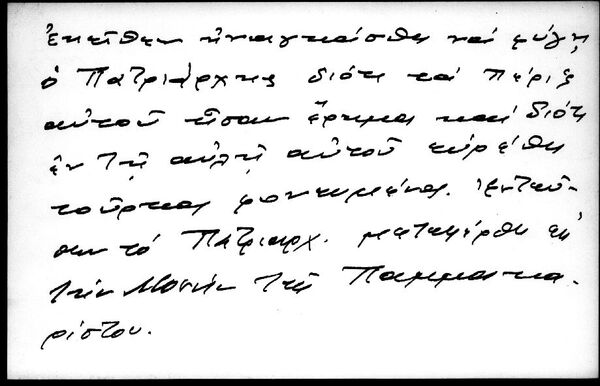 ἐκεῖθεν ἠναγκάσθη νά φύγῃ
ὁ Πατριάρχης διότι τά πέριξ
αὐτοῦ ἦσαν ἔρημα καί διότι
ἐν τῇ αὐλῇ αὐτοῦ εὑρέθη
τοῦρκος φονευμένος.
τό Πατριαρχ. μεταφέρθη εἰς
τήν Μονήν τῆς Παμμακα-
ρίστου.